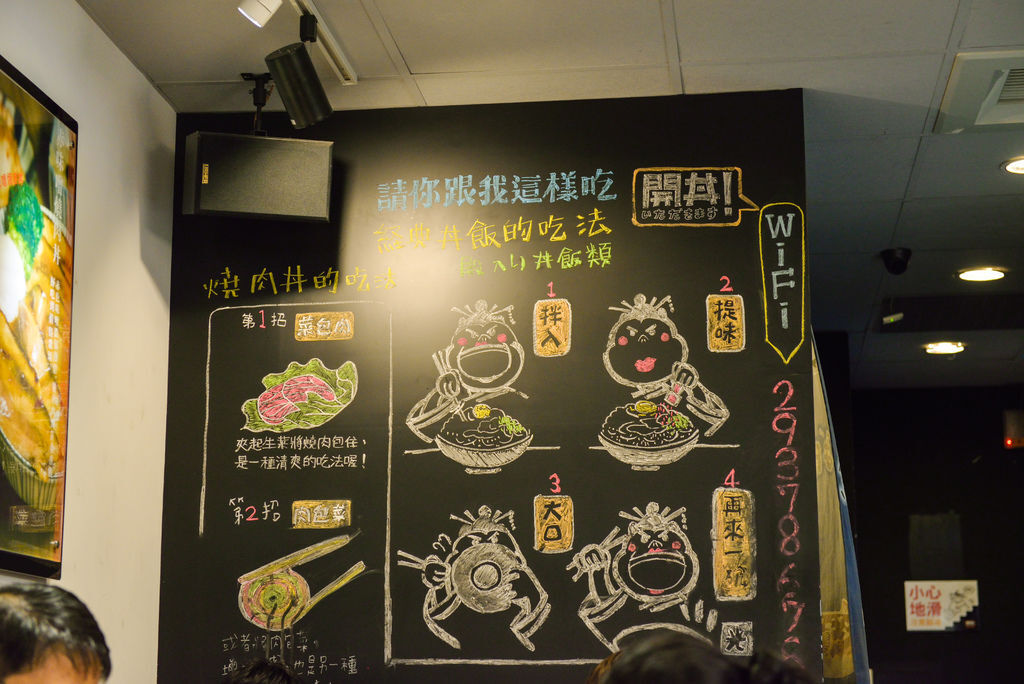 請你跟我這樣吃
開丼!
いただきます
經典丼飯的吃法
拌入り丼飯類
燒肉丼的吃法
第1招 菜包肉
夾起生菜將燒肉包住，
是一種清爽的吃法喔！
第2招 肉包菜
或者將肉包菜。
也是另一種
1
拌入
2
提味
3
大口
4
再來一碗
光
WiFi
293786676
小心
地滑